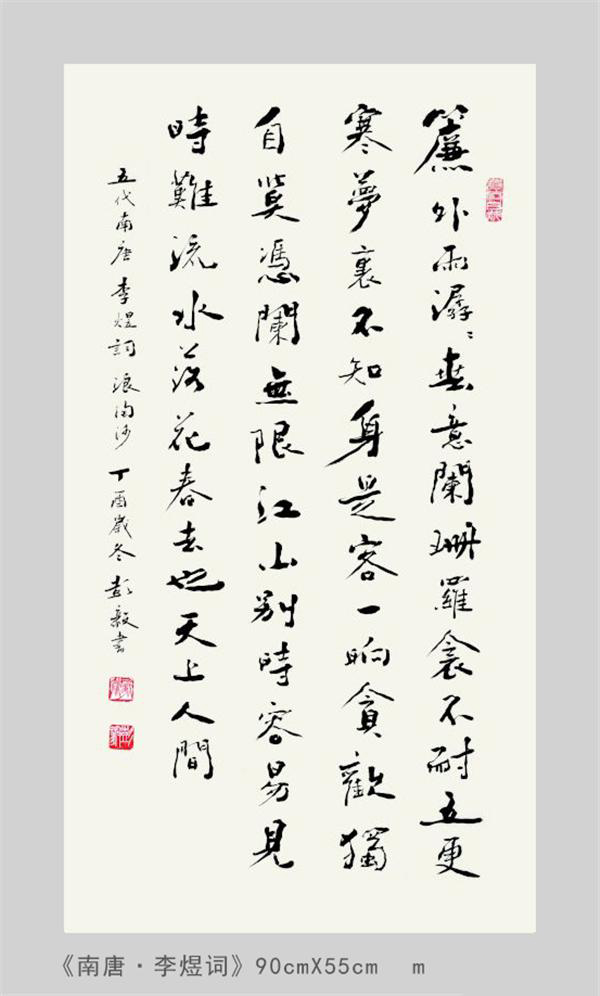 簾外雨潺〻春意闌珊羅衾不耐五更
寒夢裏不知身是客一晌貪歡獨
自莫憑闌無限江山別時容易見
時難流水落花春去也天上人間
五代南唐李煜詞浪淘沙丁酉歲冬彭毅書
《南唐·李煜词》90cmX55cm m